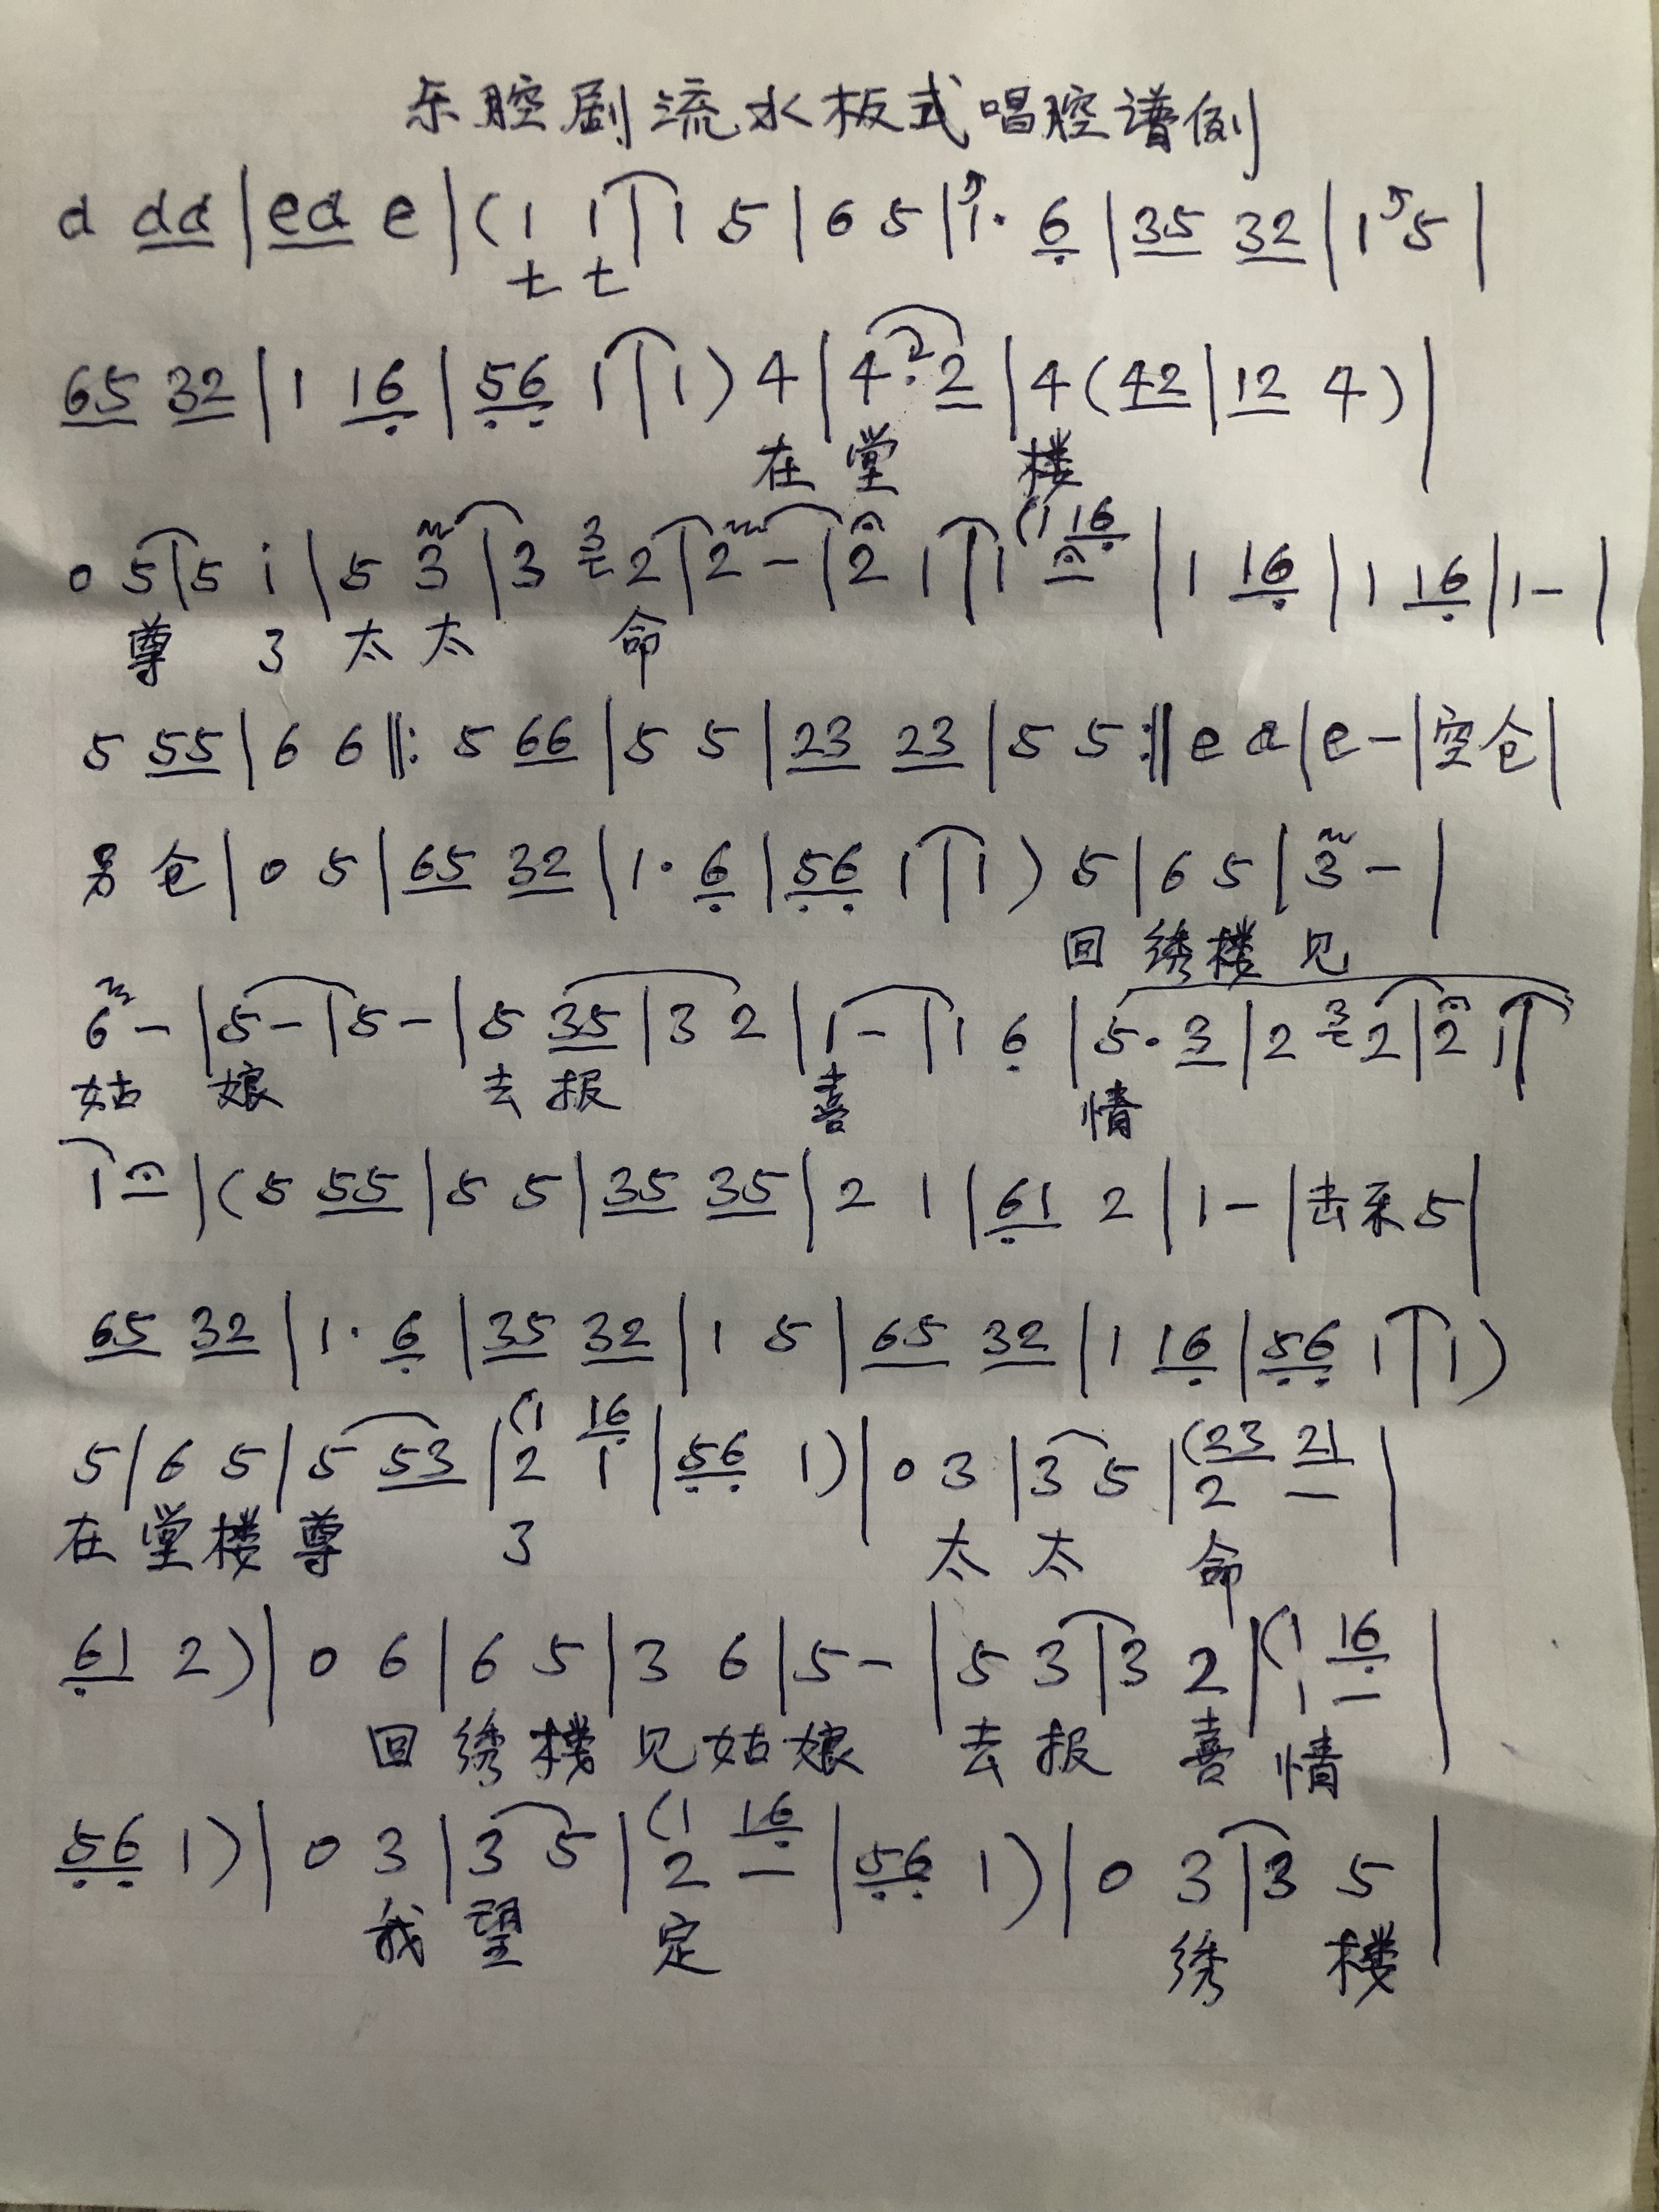 乐腔剧流水板式唱腔谱例
d dd | ed e | ( 1 1 | 1 5 | 6 5 | 1· 6 | 35 32 | 1 5 |
七 七
65 32 | 1 16 | 56 1 | 1 ) 4 | 4· 2 | 4 ( 42 | 12 4 ) |
在 堂 楼
( 1 16
0 5 | 5 i | 5 3 | 3 3 2 | 2 - | 2 1 | 1 - | 1 16 | 1 16 | 1 - |
尊 了 太 太 命
5 55 | 6 6 ‖: 5 66 | 5 5 | 23 23 | 5 5 :‖ e d | e - | 空 仓 |
另 仓 | 0 5 | 65 32 | 1· 6 | 56 1 | 1 ) 5 | 6 5 | 3 - |
回 绣 楼 见
6 - | 5 - | 5 - | 5 35 | 3 2 | 1 - | 1 6 | 5· 3 | 2 3 2 | 2 1 |
姑 娘 去 报 喜 情
1 - | ( 5 55 | 5 5 | 35 35 | 2 1 | 61 2 | 1 - | 击乐 5 |
65 32 | 1· 6 | 35 32 | 1 5 | 65 32 | 1 16 | 56 1 | 1 )
( 1 16 ( 23 21
5 | 6 5 | 5 53 | 2 1 | 56 1 ) | 0 3 | 3 5 | 2 - |
在 堂 楼 尊 了 太 太 命
( 1 16
61 2 ) | 0 6 | 6 5 | 3 6 | 5 - | 5 3 | 3 2 | 1 - |
回 绣 楼 见 姑 娘 去 报 喜 情
( 1 16
56 1 ) | 0 3 | 3 5 | 2 - | 56 1 ) | 0 3 | 3 5 |
我 望 定 绣 楼